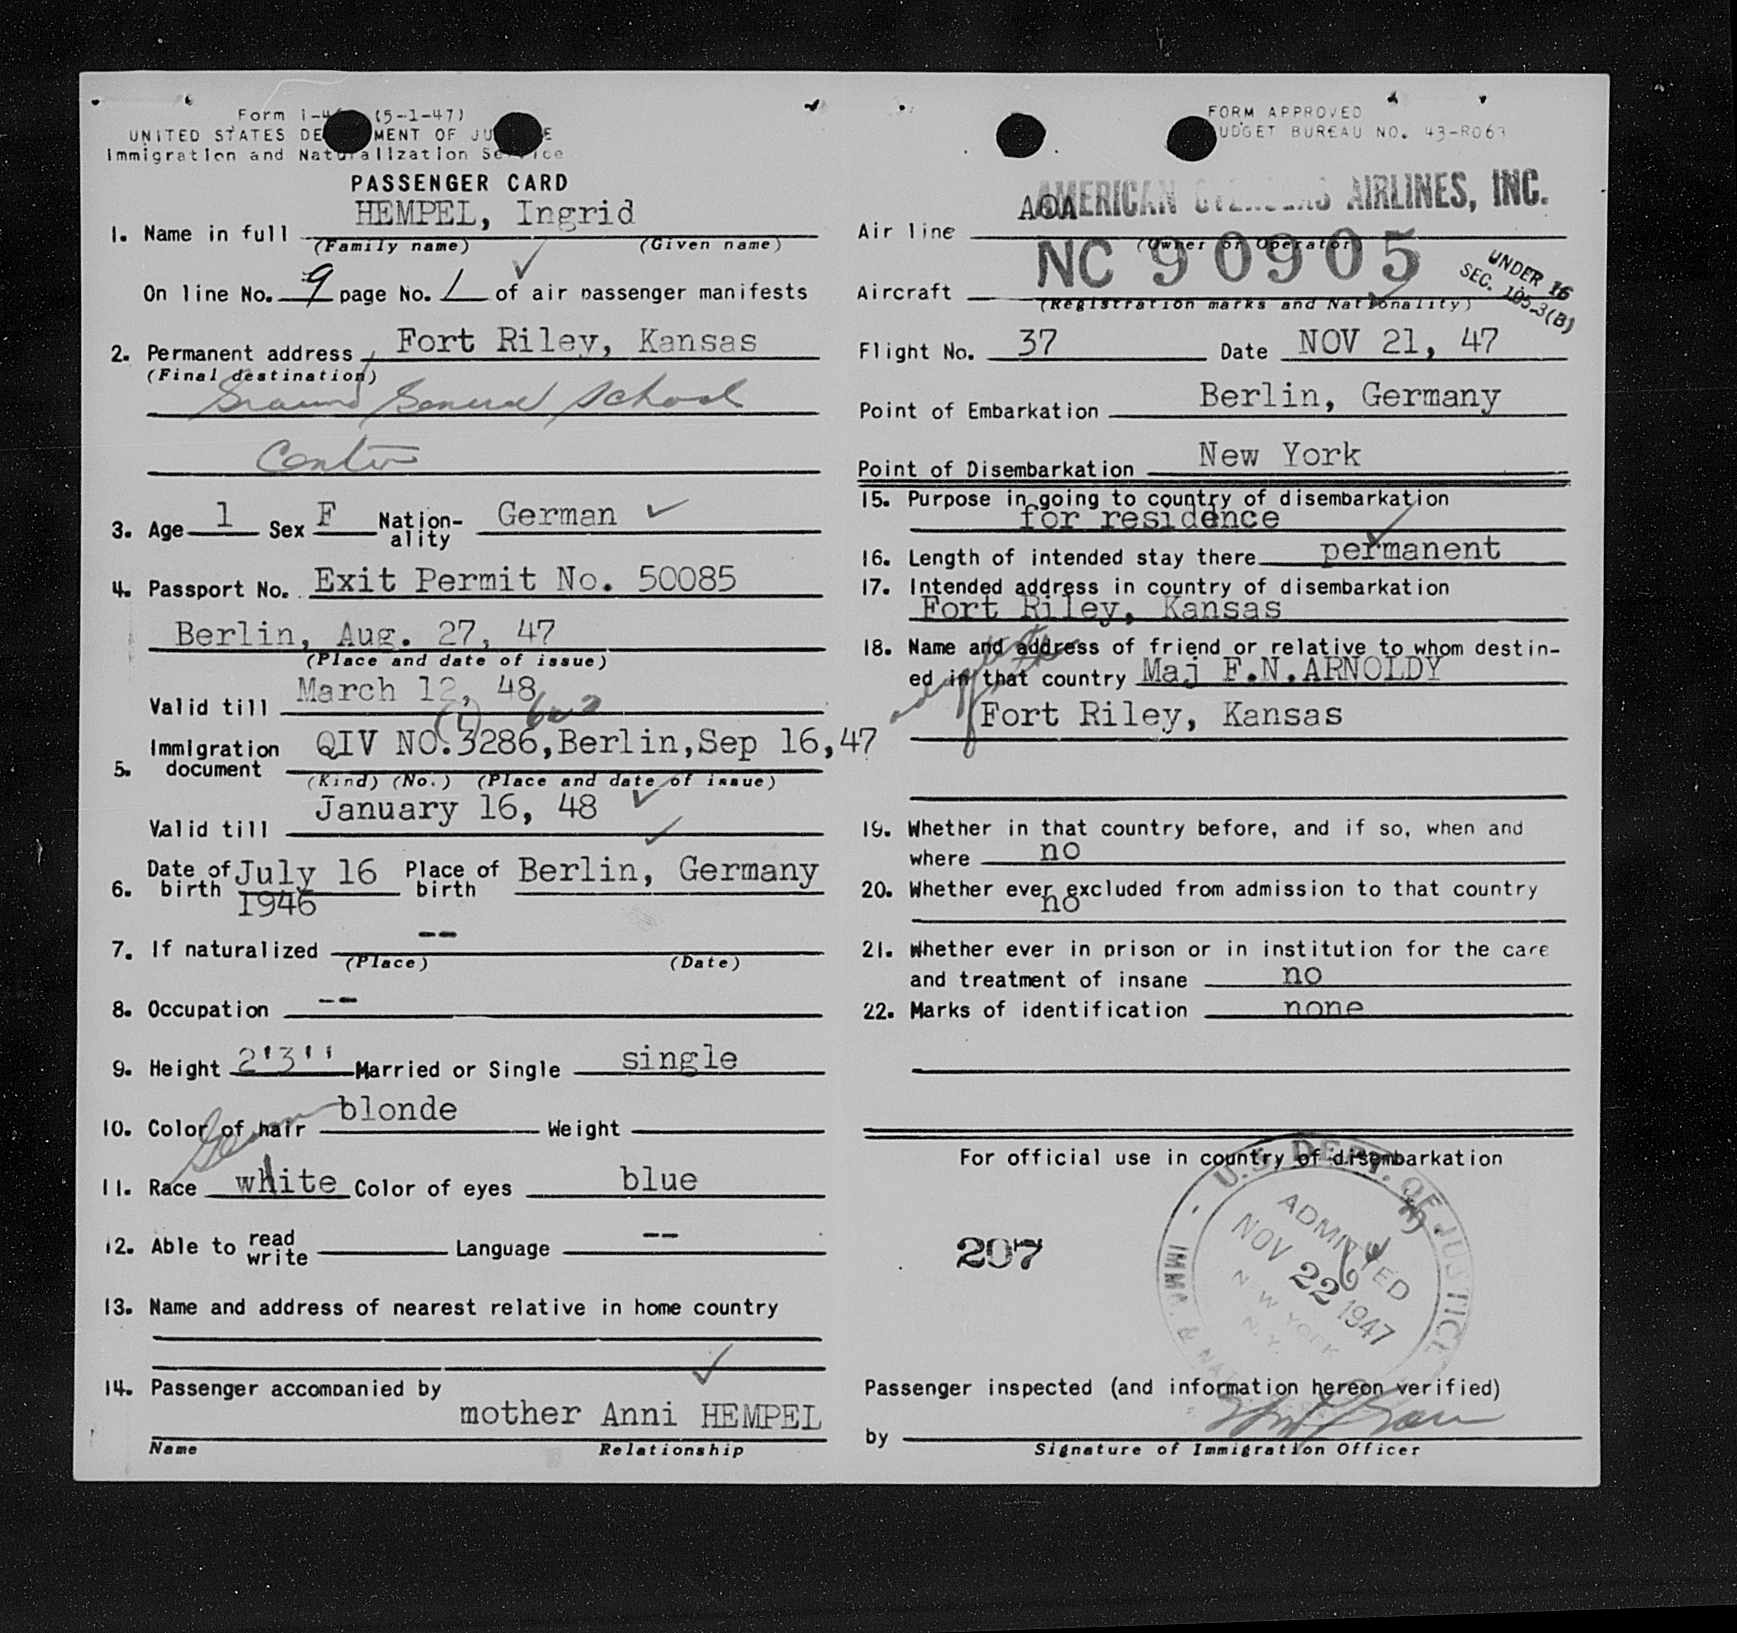 Form I-4 (5-1-47)
UNITED STATES DE MENT OF JU E
Immigration and Naturalization Service
PASSENGER CARD
1. Name in full HEMPEL, Ingrid
(Family name) (Given name)
On line No. 9 page No. 1 of air passenger manifests
2. Permanent address Fort Riley, Kansas
(Final destination)
Ground General School
Center
3. Age 1 Sex F Nation-ality German
4. Passport No. Exit Permit No. 50085
Berlin, Aug. 27, 47
(Place and date of issue)
Valid till March 12, 48
5. Immigration document QIV NO. 3286, Berlin, Sep 16, 47
(Kind) (No.) (Place and date of issue)
Valid till January 16, 48
6. Date of birth July 16 1946 Place of birth Berlin, Germany
7. If naturalized --
(Place) (Date)
8. Occupation --
9. Height 2'3'' Married or Single single
10. Color of hair blonde Weight
German
11. Race white Color of eyes blue
12. Able to read write Language --
13. Name and address of nearest relative in home country
14. Passenger accompanied by
mother Anni HEMPEL
Name Relationship
FORM APPROVED
UDGET BUREAU NO. 43-R063
AMERICAN OVERSEAS AIRLINES, INC.
Air line AOA
(Owner or Operator)
Aircraft NC 90905
(Registration marks and Nationality)
UNDER 16
SEC. 105.3(B)
Flight No. 37 Date NOV 21, 47
Point of Embarkation Berlin, Germany
Point of Disembarkation New York
15. Purpose in going to country of disembarkation
for residence
16. Length of intended stay there permanent
17. Intended address in country of disembarkation
Fort Riley, Kansas
18. Name and address of friend or relative to whom destin-
ed in that country Maj F.N.ARNOLDY
Fort Riley, Kansas
19. Whether in that country before, and if so, when and
where no
20. Whether ever excluded from admission to that country
no
21. Whether ever in prison or in institution for the care
and treatment of insane no
22. Marks of identification none
For official use in country of disembarkation
207
U.S. DEPT. OF JUSTICE
ADMITTED
NOV 22 1947
N. W YORK
N. Y.
IMM. & NA
Passenger inspected (and information hereon verified)
by
Signature of Immigration Officer